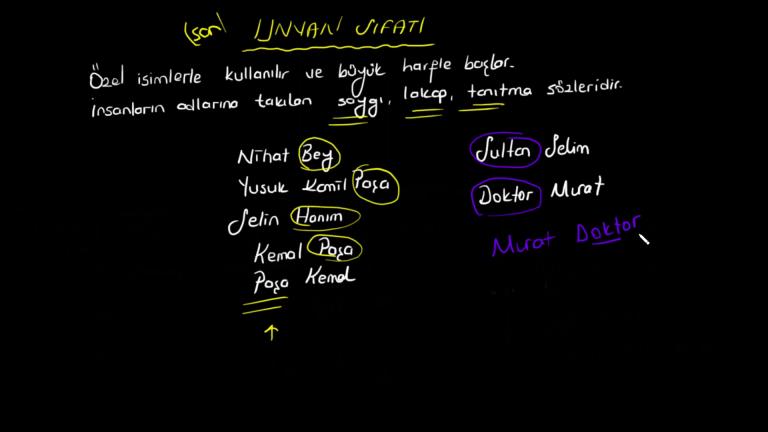 (son) ÜNVAN SIFATI
Özel isimlerle kullanılır ve büyük harfle başlar.
İnsanların adlarına takılan saygı, lakap, tanıtma sözleridir.
Nihat Bey
Yusuk Kamil Paşa
Selin Hanım
Kemal Paşa
Paşa Kemal
Sultan Selim
Doktor Murat
Murat Doktor